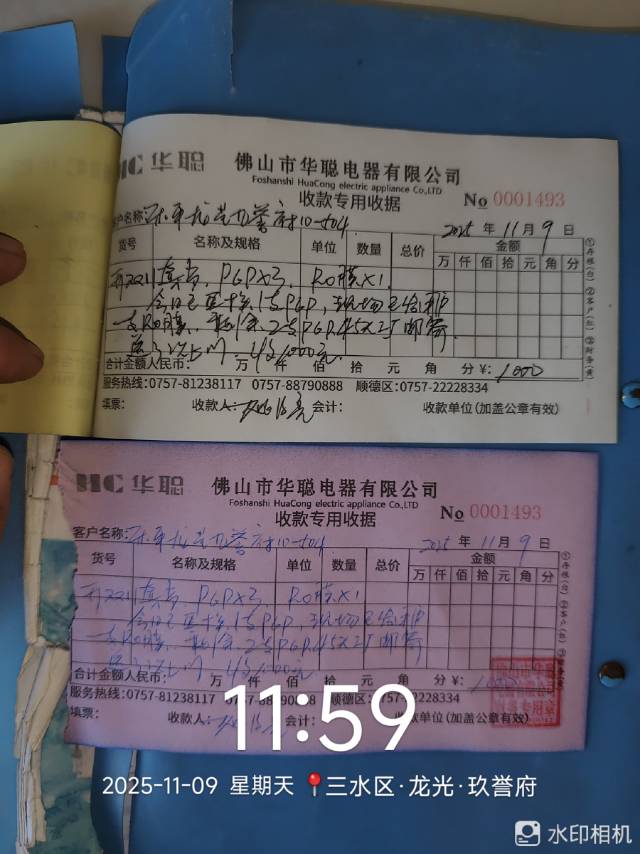 HC 华聪
佛山市华聪电器有限公司
Foshanshi HuaCong electric appliance Co.,LTD
收款专用收据
No 0001493
客户名称: 龙光玖誉府10-504
2025 年 11 月 9 日
货号 名称及规格 单位 数量 总价 金额
万 仟 佰 拾 元 角 分
PGPX3 RO膜X1
今日已更换1支PGP,现场已给
支RO膜, 2支PGP
1000元
合计金额人民币: 万 仟 佰 拾 元 角 分 ¥: 1000
服务热线:0757-81238117 0757-88790888 顺德区:0757-22228334
填票: 收款人: 会计: 收款单位(加盖公章有效)
①存根(白) ②客户(红) ③财务(黄)
HC 华聪
佛山市华聪电器有限公司
Foshanshi HuaCong electric appliance Co.,LTD
收款专用收据
No 0001493
客户名称: 龙光玖誉府10-504
2025 年 11 月 9 日
货号 名称及规格 单位 数量 总价 金额
万 仟 佰 拾 元 角 分
PGPX3 RO膜X1
今日已更换1支PGP,现场已给
支RO膜, 2支PGP
1000元
合计金额人民币: 万 仟 佰 拾 元 角 分 ¥: 1000
服务热线:0757-81238117 0757-88790888 顺德区:0757-22228334
填票: 收款人: 会计: 收款单位(加盖公章有效)
11:59
2025-11-09 星期天 三水区·龙光·玖誉府
水印相机